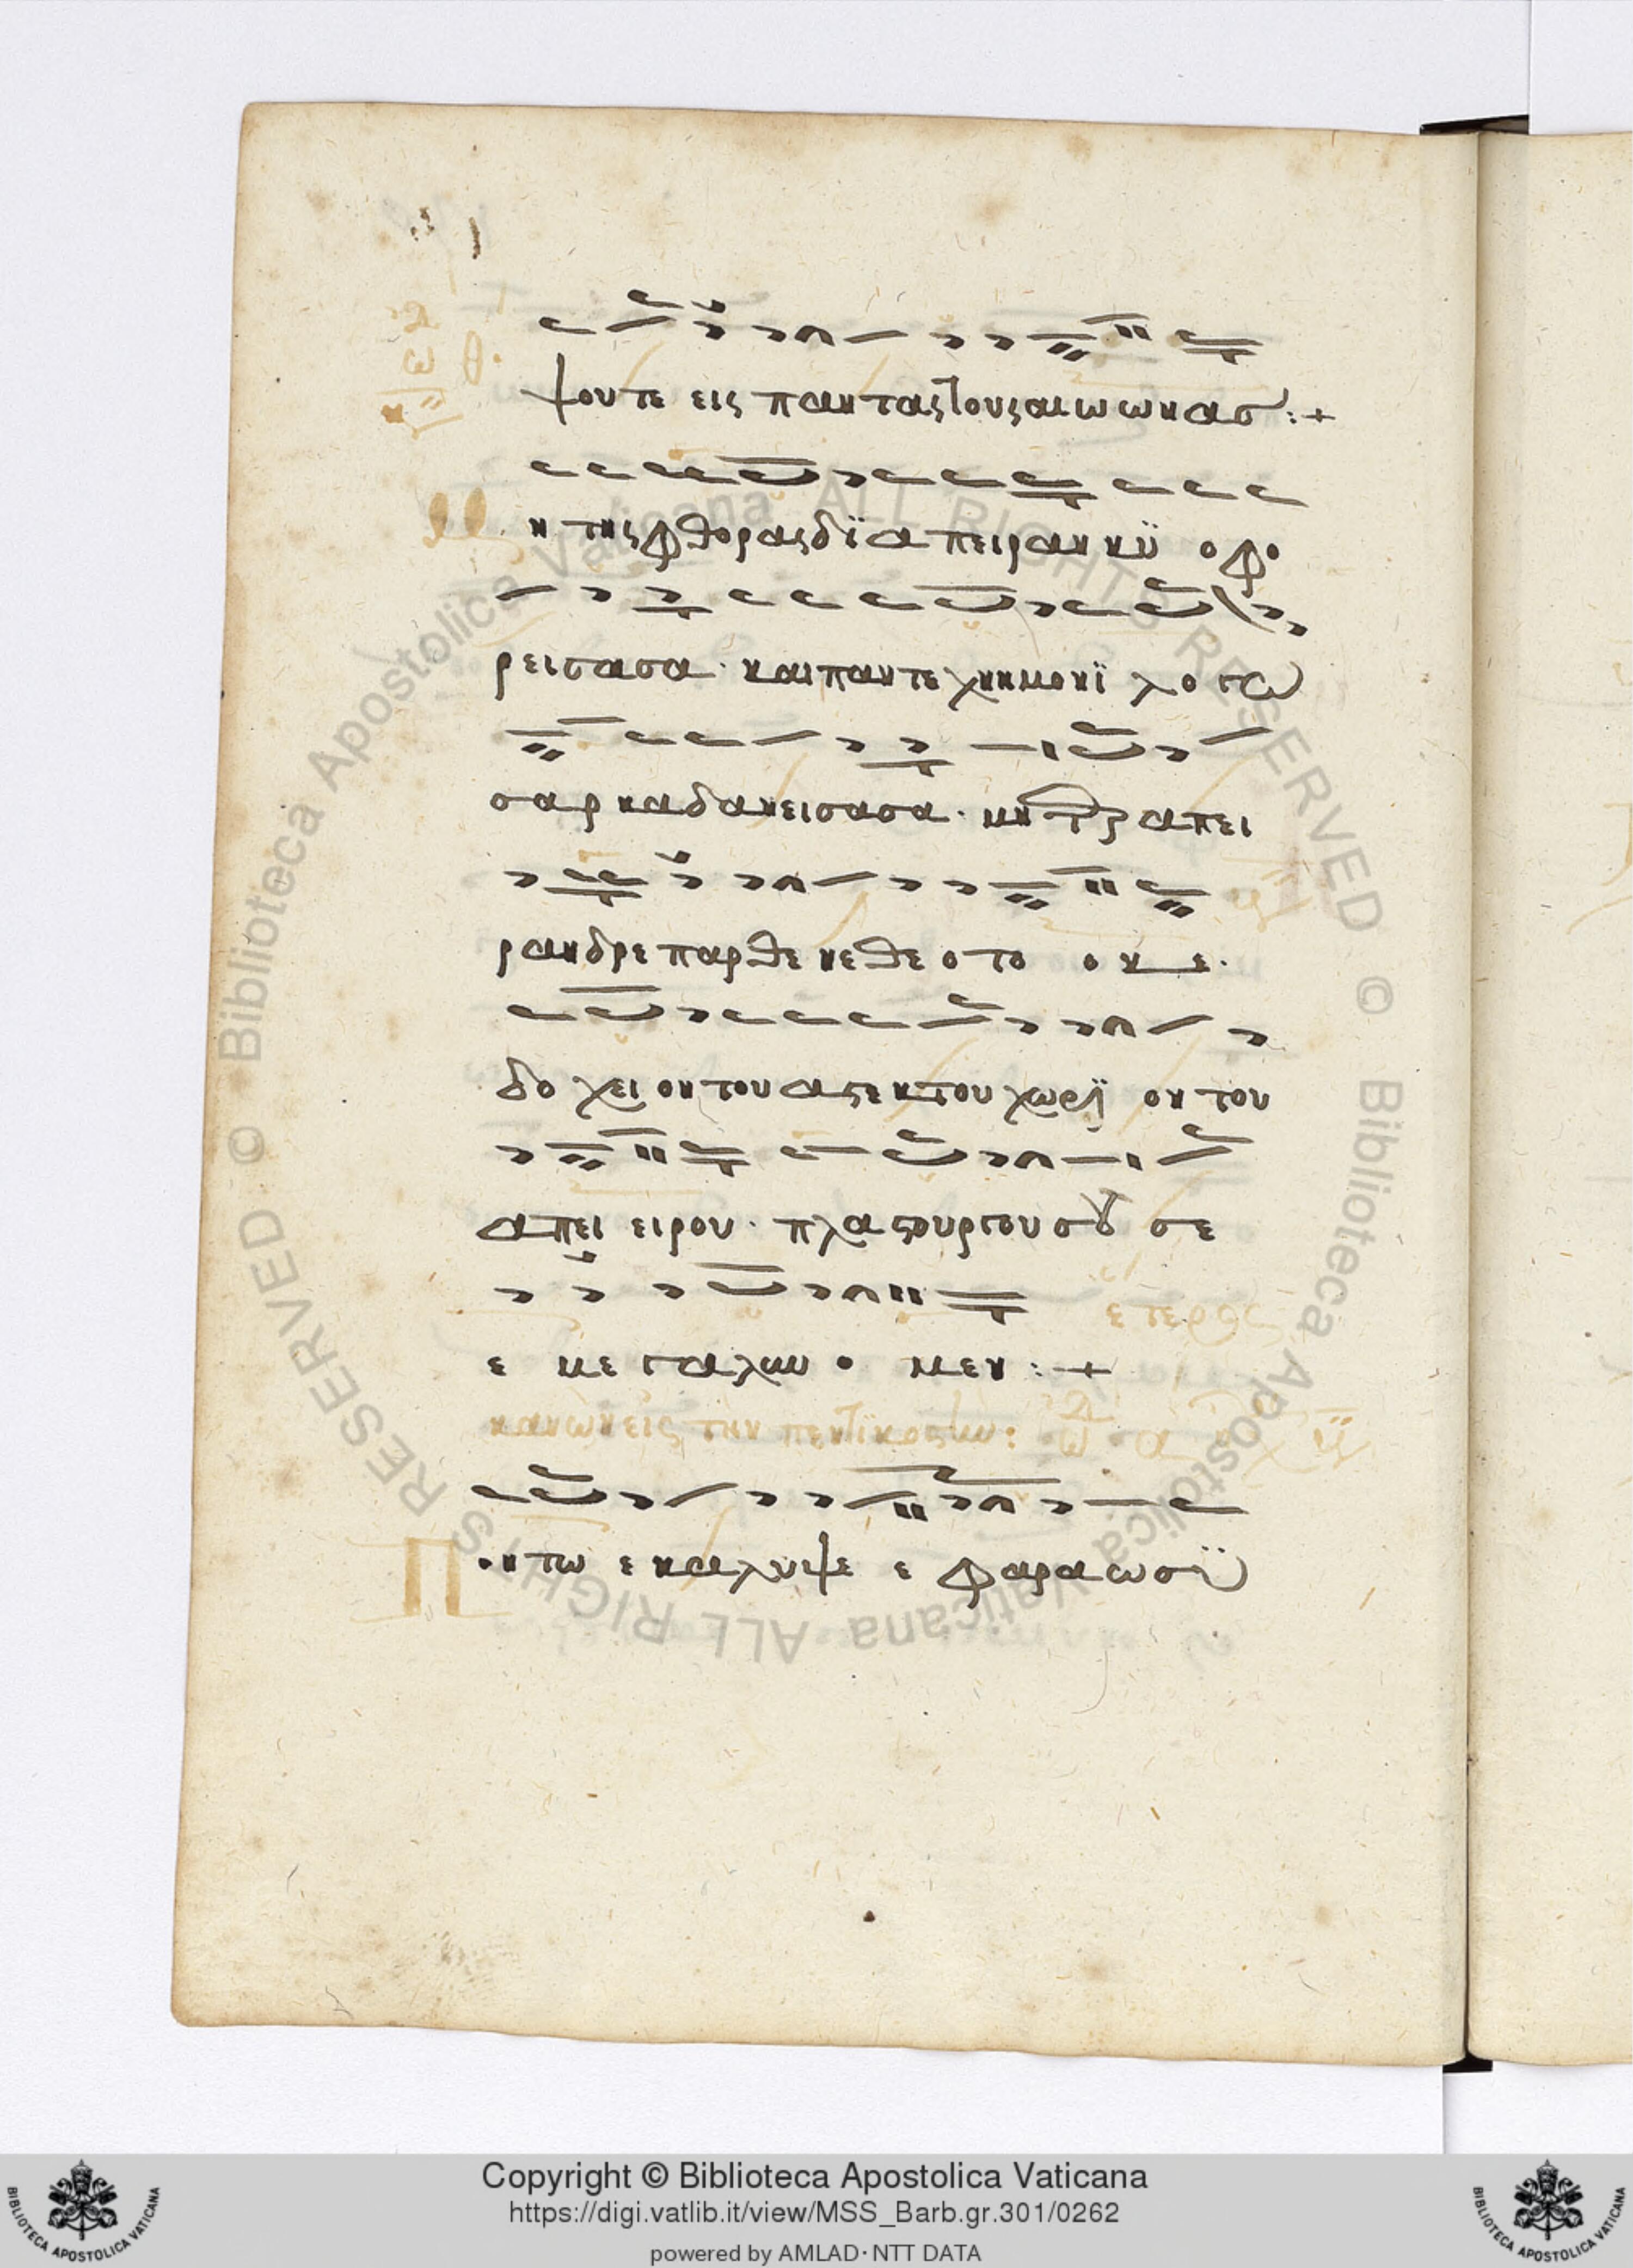 ψουτε εις παντας τους αιωωνασ:+
η της φθορας δϊαπειρα κυϊ οφο
ρεισασα· και παντεχνημονϊ λογω
σαρκα δανεισασα· μητρ απει
ρανδρε παρθενε θεοτο οκε·
δοχειον του αστεκτου χωρϊ ον του
απει ειρου· πλαστουργου σου σε
ε μεγαλυν ο μεν:+
κανων εις την πεντϊκοστην:
οντω εκαλυψε ε φαραωσϊ
Copyright © Biblioteca Apostolica Vaticana
https://digi.vatlib.it/view/MSS_Barb.gr.301/0262
powered by AMLAD·NTT DATA